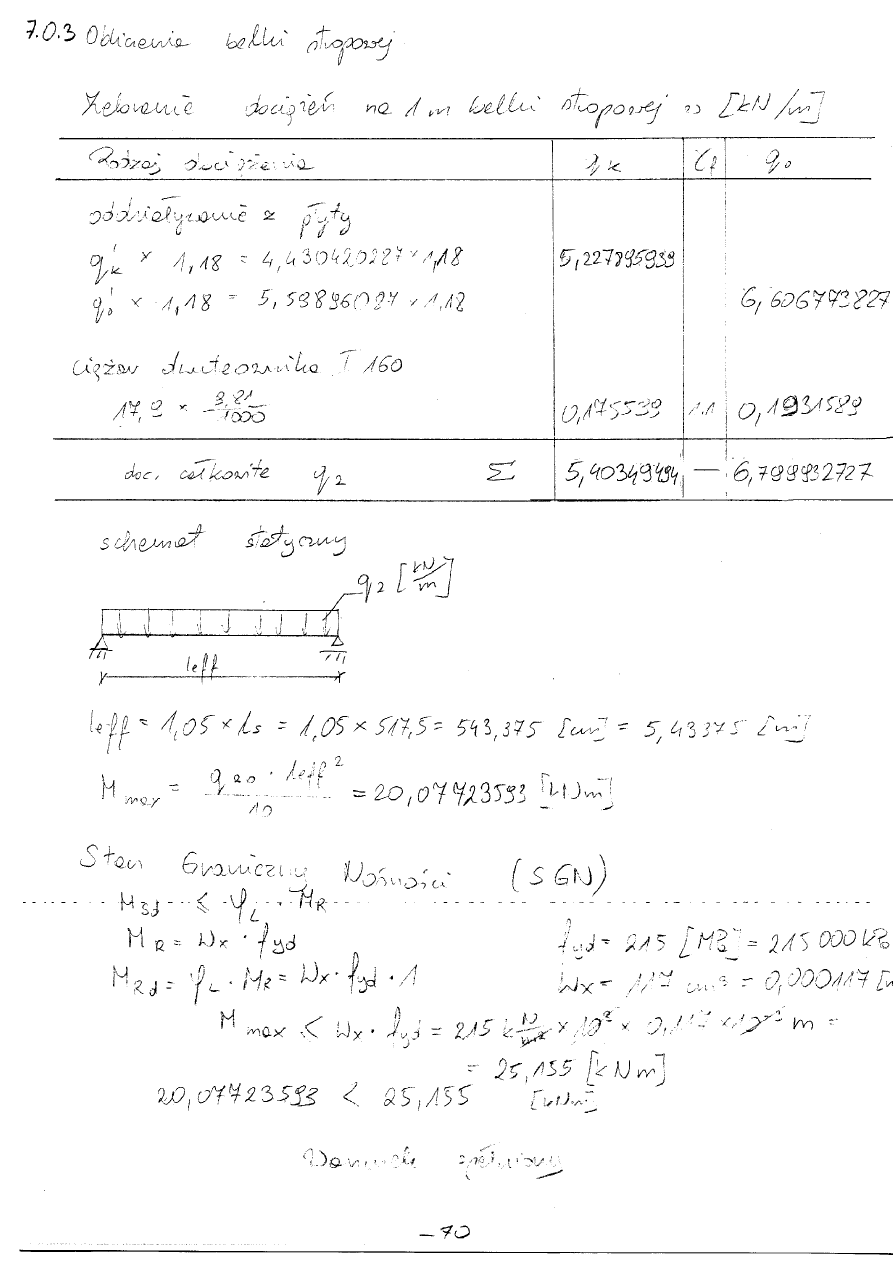 7.0.3 Obliczenia belki stropowej
Zebranie obciążeń na 1 m belki stropowej w [kN/m]
Rodzaj obciążenia qk γf q₀
oddziaływanie z płyty
q'k × 1,18 = 4,430420287 × 1,18 5,227895939
q'₀ × 1,18 = 5,59896084 × 1,18 6,606773827
Ciężar dwuteownika I 160
17,9 × 9,81/1000 0,175599 1.1 0,1931589
obc. całkowite q₂ Σ 5,403494941 — 6,799932727
schemat statyczny
q₂ [kN/m]
leff
leff = 1,05 × ls = 1,05 × 517,5 = 543,375 [cm] = 5,43375 [m]
M max = q₂₀ · leff² / 10 = 20,07723593 [kNm]
Stan Graniczny Nośności (SGN)
MSd ≤ φL · MR
MR = Wx · fyd fyd = 215 [MPa] = 215 000 kPa
MRd = φL · MR = Wx · fyd · 1 Wx = 117 cm³ = 0,000117 [m
M max ≤ Wx · fyd = 215 k N/m² × 10³ × 0,117 × 10⁻³ m =
= 25,155 [kNm]
20,07723593 < 25,155 [kNm]
Warunek spełniony
– 70